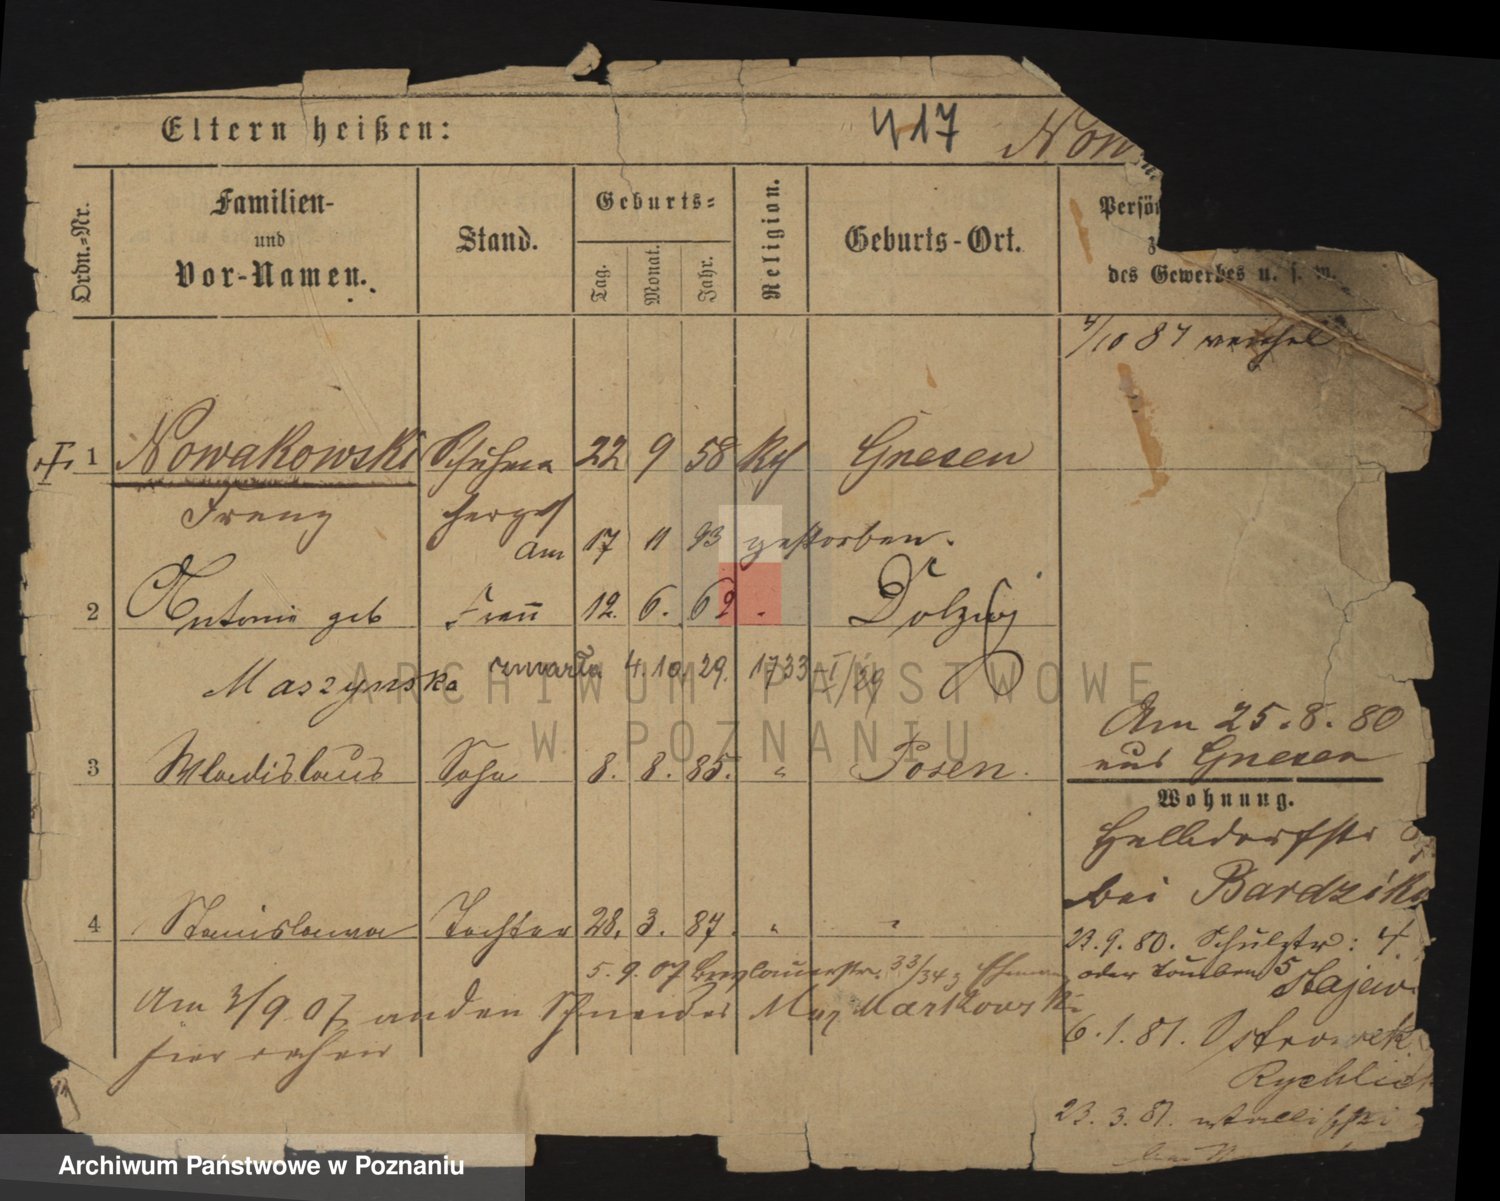 Eltern heißen:
417
Now
Ordn.-Nr.
Familien-
und
Vor-Namen.
Stand.
Geburts-
Tag.
Monat.
Jahr.
Religion.
Geburts-Ort.
Persön
des Gewerbes u. s. w.
4/10 87
1 Nowakowski Schuhma 22 9 58 kth Gnesen
Franz
Am 17 11 93 gestorben.
2 Antonie geb Frau 12. 6. 62 Dolzig
Maszynska zmarła 4.10.29. 1733
3 Wladislaus Sohn 8. 8. 85. " Posen.
Am 25.8.80
aus Gnesen
Wohnung.
bei Bardzik
4 Stanislawa Tochter 28. 3. 87. " "
23.9.80. Schulstr: 4.
oder Tauben 5
Stajew
5.9.07 Breslauerstr. 33/34
Am 3/9 07 an den Schneider Markowski
hier
6.1.81. Ostrowek
Rychlick
23.3.81.
ARCHIWUM PAŃSTWOWE
W POZNANIU
Archiwum Państwowe w Poznaniu